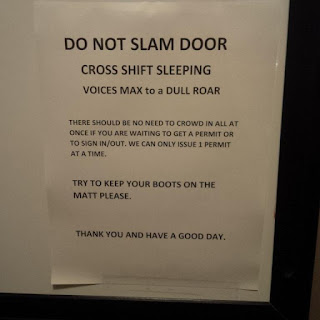 DO NOT SLAM DOOR
CROSS SHIFT SLEEPING
VOICES MAX to a DULL ROAR
THERE SHOULD BE NO NEED TO CROWD IN ALL AT
ONCE IF YOU ARE WAITING TO GET A PERMIT OR
TO SIGN IN/OUT. WE CAN ONLY ISSUE 1 PERMIT
AT A TIME.
TRY TO KEEP YOUR BOOTS ON THE
MATT PLEASE.
THANK YOU AND HAVE A GOOD DAY.